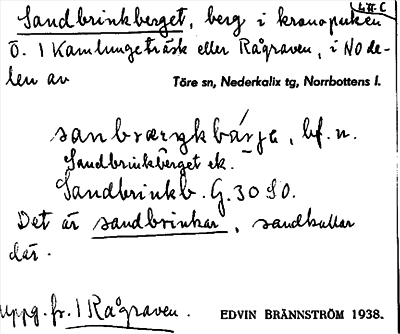 L# C
Sandbrinkberget, berg i kronoparken
Ö. 1 Kamlungeträsk eller Rågraven, i NO de-
len av
Töre sn, Nederkalix tg, Norrbottens l.
sanbrærgkbärja, bf. n.
Sandbrinkberget ek.
Sandbrinkb. G. 30 SO.
Det är sandbrinkar, sandkullar
där.
Uppg. fr. 1 Rågraven.
EDVIN BRÄNNSTRÖM 1938.